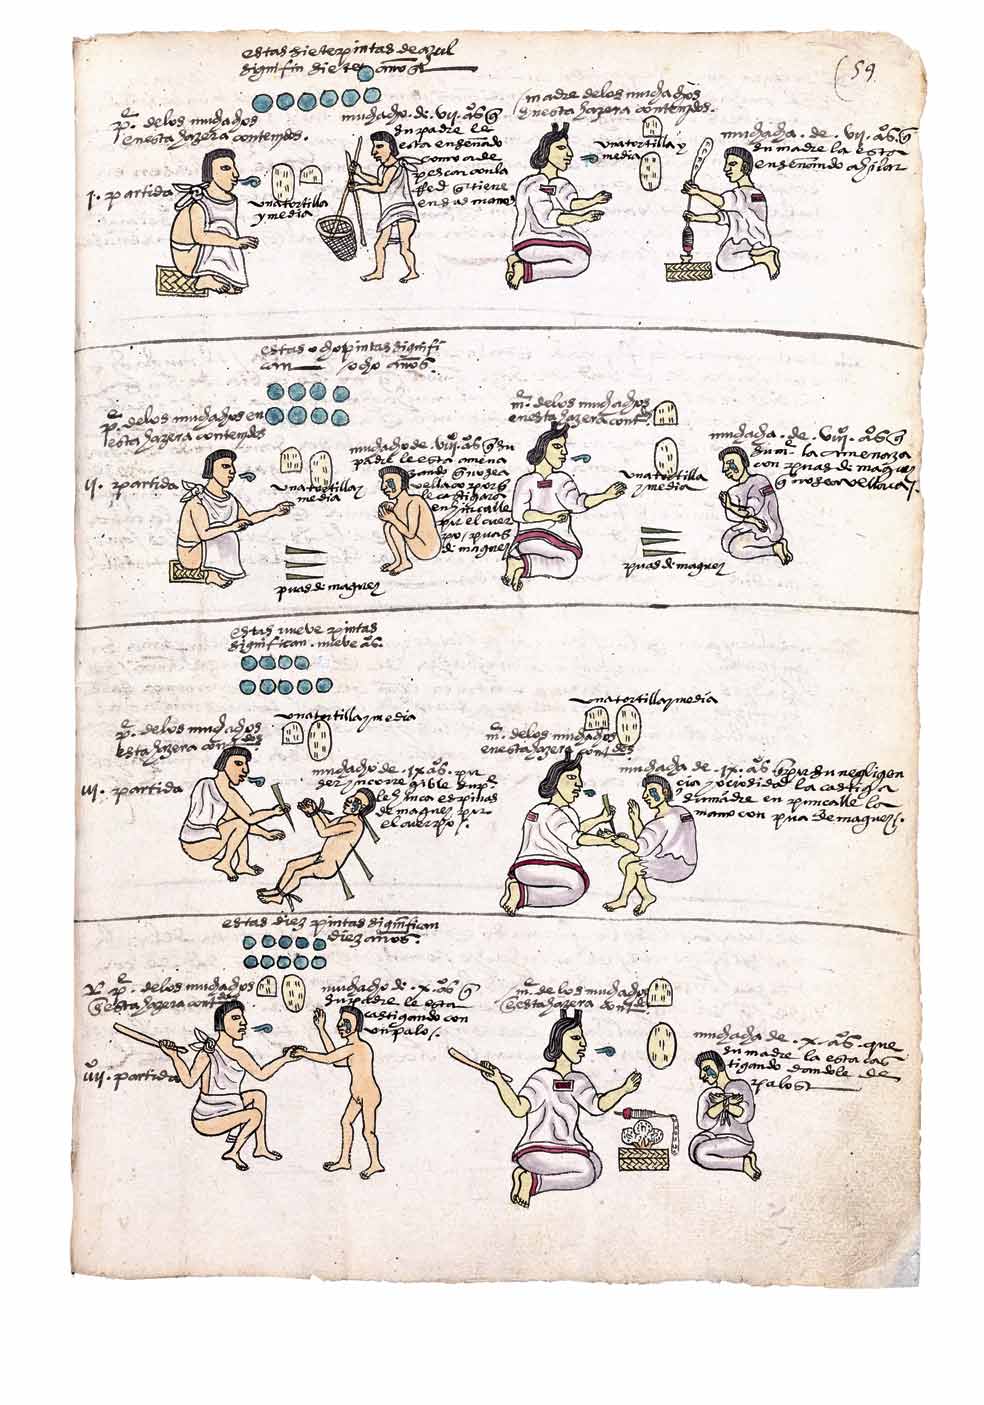 59
estas siete pintas de azul
significan siete años
pe. de los muchachos
en esta hazera contenidos.
muchacho. de. Vii. aos q̃
su padre le
esta enseñado
como a de
pescar con la
Red q̃ tiene
en las manos
madre de los muchachos
en esta hazera contenidos.
muchacha. de. Vii. aos q̃
su madre la esta
enseñando a hilar
j. partida
una tortilla
y media
una tortilla y
media
estas ocho pintas signifi
can ocho años.
pe. de los muchachos en
esta hazera contenidos
muchacho de. Viii. aos q̃ su
padre le esta amena
zando q̃ no sea
vellaco porq̃
le castigara
en hincalle
por el cuer
po / puas
de maguey
me. de los muchachos
en esta hazera contos.
muchacha. de. Viii. aos q̃
su me. la amenaza
con puas de maguey
q̃ no sea vellaca /.
ij. partida
una tortilla y
media
una tortilla
y media
puas de maguey
puas de maguey
estas nueve pintas
significan. nueve aos.
pe. de los muchachos
esta hazera contdos
una tortilla y media
muchacho de. ix. aos. por
ser yncorregible su pe.
le hinca espinas
de maguey por
el cuerpo /.
una tortilla y media
me. de los muchachos
en esta hazera contdos
muchacha de. ix. aos q̃ por su negligen
cia y ociosidad la castiga
su madre en puncalle la
mano con pua de maguey /.
iij. partida
estas diez pintas significan
diez años.
pe. de los muchachos
en esta hazera contdos
muchacho de. x. aos q̃
su padre le esta
castigando con
un palo /.
me. de los muchachos
en esta hazera contdos.
muchacha de. x. aos. que
su madre la esta cas
tigando dandole de
palos
iiij. partida